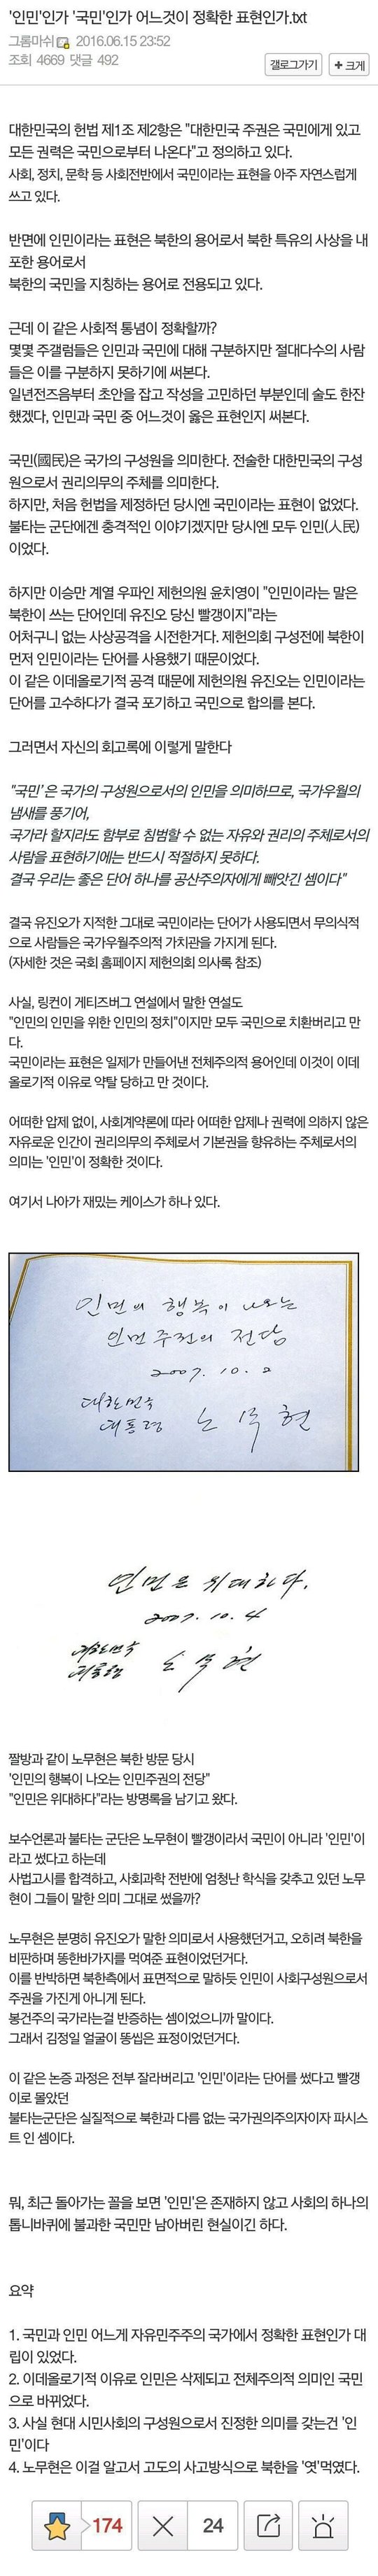 '인민'인가 '국민'인가 어느것이 정확한 표현인가.txt
그롬마쉬 2016.06.15 23:52
조회 4669 댓글 492
갤로그가기 + 크게
대한민국의 헌법 제1조 제2항은 "대한민국 주권은 국민에게 있고
모든 권력은 국민으로부터 나온다"고 정의하고 있다.
사회, 정치, 문학 등 사회전반에서 국민이라는 표현을 아주 자연스럽게
쓰고 있다.
반면에 인민이라는 표현은 북한의 용어로서 북한 특유의 사상을 내
포한 용어로서
북한의 국민을 지칭하는 용어로 전용되고 있다.
근데 이 같은 사회적 통념이 정확할까?
몇몇 주갤럼들은 인민과 국민에 대해 구분하지만 절대다수의 사람
들은 이를 구분하지 못하기에 써본다.
일년전즈음부터 초안을 잡고 작성을 고민하던 부분인데 술도 한잔
했겠다, 인민과 국민 중 어느것이 옳은 표현인지 써본다.
국민(國民)은 국가의 구성원을 의미한다. 전술한 대한민국의 구성
원으로서 권리의무의 주체를 의미한다.
하지만, 처음 헌법을 제정하던 당시엔 국민이라는 표현이 없었다.
불타는 군단에겐 충격적인 이야기겠지만 당시엔 모두 인민(人民)
이었다.
하지만 이승만 계열 우파인 제헌의원 윤치영이 "인민이라는 말은
북한이 쓰는 단어인데 유진오 당신 빨갱이지"라는
어처구니 없는 사상공격을 시전한거다. 제헌의회 구성전에 북한이
먼저 인민이라는 단어를 사용했기 때문이었다.
이 같은 이데올로기적 공격 때문에 제헌의원 유진오는 인민이라는
단어를 고수하다가 결국 포기하고 국민으로 합의를 본다.
그러면서 자신의 회고록에 이렇게 말한다
"'국민'은 국가의 구성원으로서의 인민을 의미하므로, 국가우월의
냄새를 풍기어,
국가라 할지라도 함부로 침범할 수 없는 자유와 권리의 주체로서의
사람을 표현하기에는 반드시 적절하지 못하다.
결국 우리는 좋은 단어 하나를 공산주의자에게 빼앗긴 셈이다"
결국 유진오가 지적한 그대로 국민이라는 단어가 사용되면서 무의식적
으로 사람들은 국가우월주의적 가치관을 가지게 된다.
(자세한 것은 국회 홈페이지 제헌의회 의사록 참조)
사실, 링컨이 게티즈버그 연설에서 말한 연설도
"인민의 인민을 위한 인민의 정치"이지만 모두 국민으로 치환버리고 만
다.
국민이라는 표현은 일제가 만들어낸 전체주의적 용어인데 이것이 이데
올로기적 이유로 약탈 당하고 만 것이다.
어떠한 압제 없이, 사회계약론에 따라 어떠한 압제나 권력에 의하지 않은
자유로운 인간이 권리의무의 주체로서 기본권을 향유하는 주체로서의
의미는 '인민'이 정확한 것이다.
여기서 나아가 재밌는 케이스가 하나 있다.
인민의 행복이 나오는
인민주권의 전당
2007. 10. 2
대한민국
대통령 노무현
인민은 위대하다.
2007. 10. 4
대한민국
대통령 노무현
짤방과 같이 노무현은 북한 방문 당시
'인민의 행복이 나오는 인민주권의 전당"
"인민은 위대하다"라는 방명록을 남기고 왔다.
보수언론과 불타는 군단은 노무현이 빨갱이라서 국민이 아니라 '인민'이
라고 썼다고 하는데
사법고시를 합격하고, 사회과학 전반에 엄청난 학식을 갖추고 있던 노무
현이 그들이 말한 의미 그대로 썼을까?
노무현은 분명히 유진오가 말한 의미로서 사용했던거고, 오히려 북한을
비판하며 똥한바가지를 먹여준 표현이었던거다.
이를 반박하면 북한측에서 표면적으로 말하듯 인민이 사회구성원으로서
주권을 가진게 아니게 된다.
봉건주의 국가라는걸 반증하는 셈이었으니까 말이다.
그래서 김정일 얼굴이 똥씹은 표정이었던거다.
이 같은 논증 과정은 전부 잘라버리고 '인민'이라는 단어를 썼다고 빨갱
이로 몰았던
불타는군단은 실질적으로 북한과 다름 없는 국가권의주의자이자 파시스
트 인 셈이다.
뭐, 최근 돌아가는 꼴을 보면 '인민'은 존재하지 않고 사회의 하나의
톱니바퀴에 불과한 국민만 남아버린 현실이긴 하다.
요약
1. 국민과 인민 어느게 자유민주주의 국가에서 정확한 표현인가 대
립이 있었다.
2. 이데올로기적 이유로 인민은 삭제되고 전체주의적 의미인 국민
으로 바뀌었다.
3. 사실 현대 시민사회의 구성원으로서 진정한 의미를 갖는건 '인
민'이다
4. 노무현은 이걸 알고서 고도의 사고방식으로 북한을 '엿'먹였다.
174 24